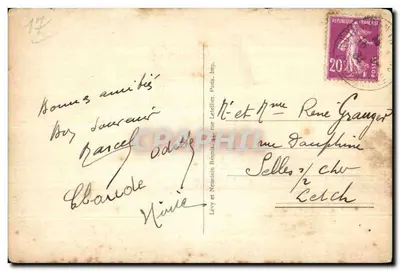 17
RÉPUBLIQUE FRANÇAISE
20c
POSTES
Bonnes amitiés
Bon Souvenir
Marcel Odette
Claude
Levy et Neurdein Réunis, rue Letellier, Paris, Imp.
Mr et Mme René Granger
rue Dauphine
Selles s/ Cher